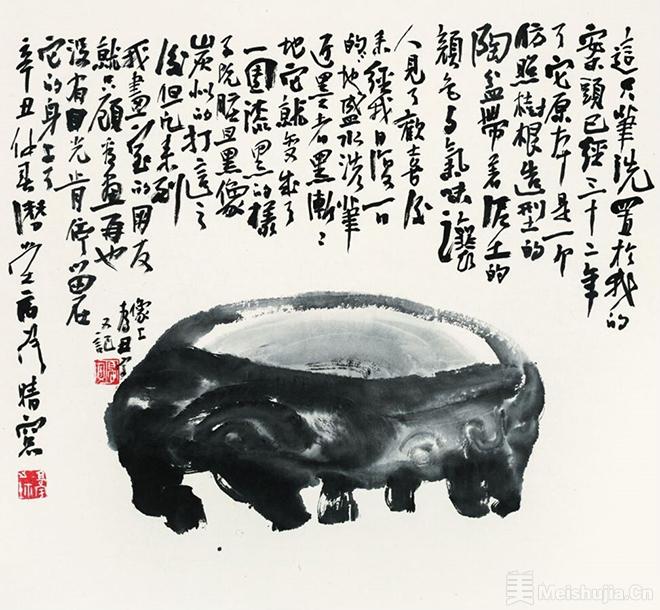 這只筆洗置於我的
案頭已經三十二年
了它原本是一个
仿照樹根造型的
陶盆帶着泥土的
顏色与氣味讓
人見了歡喜後
來經我日復一日
的地盛水洗筆
近墨者黑漸々
地它就變成了
一團漆黑的樣
子既暗且黑像
炭似的打這之
後但凡來到
我畫室的朋友
就只顧看畫再也
沒有目光肯停留在
它的身上了
辛丑仲春潛堂晴窗
又記
美 Meishujia.Cn